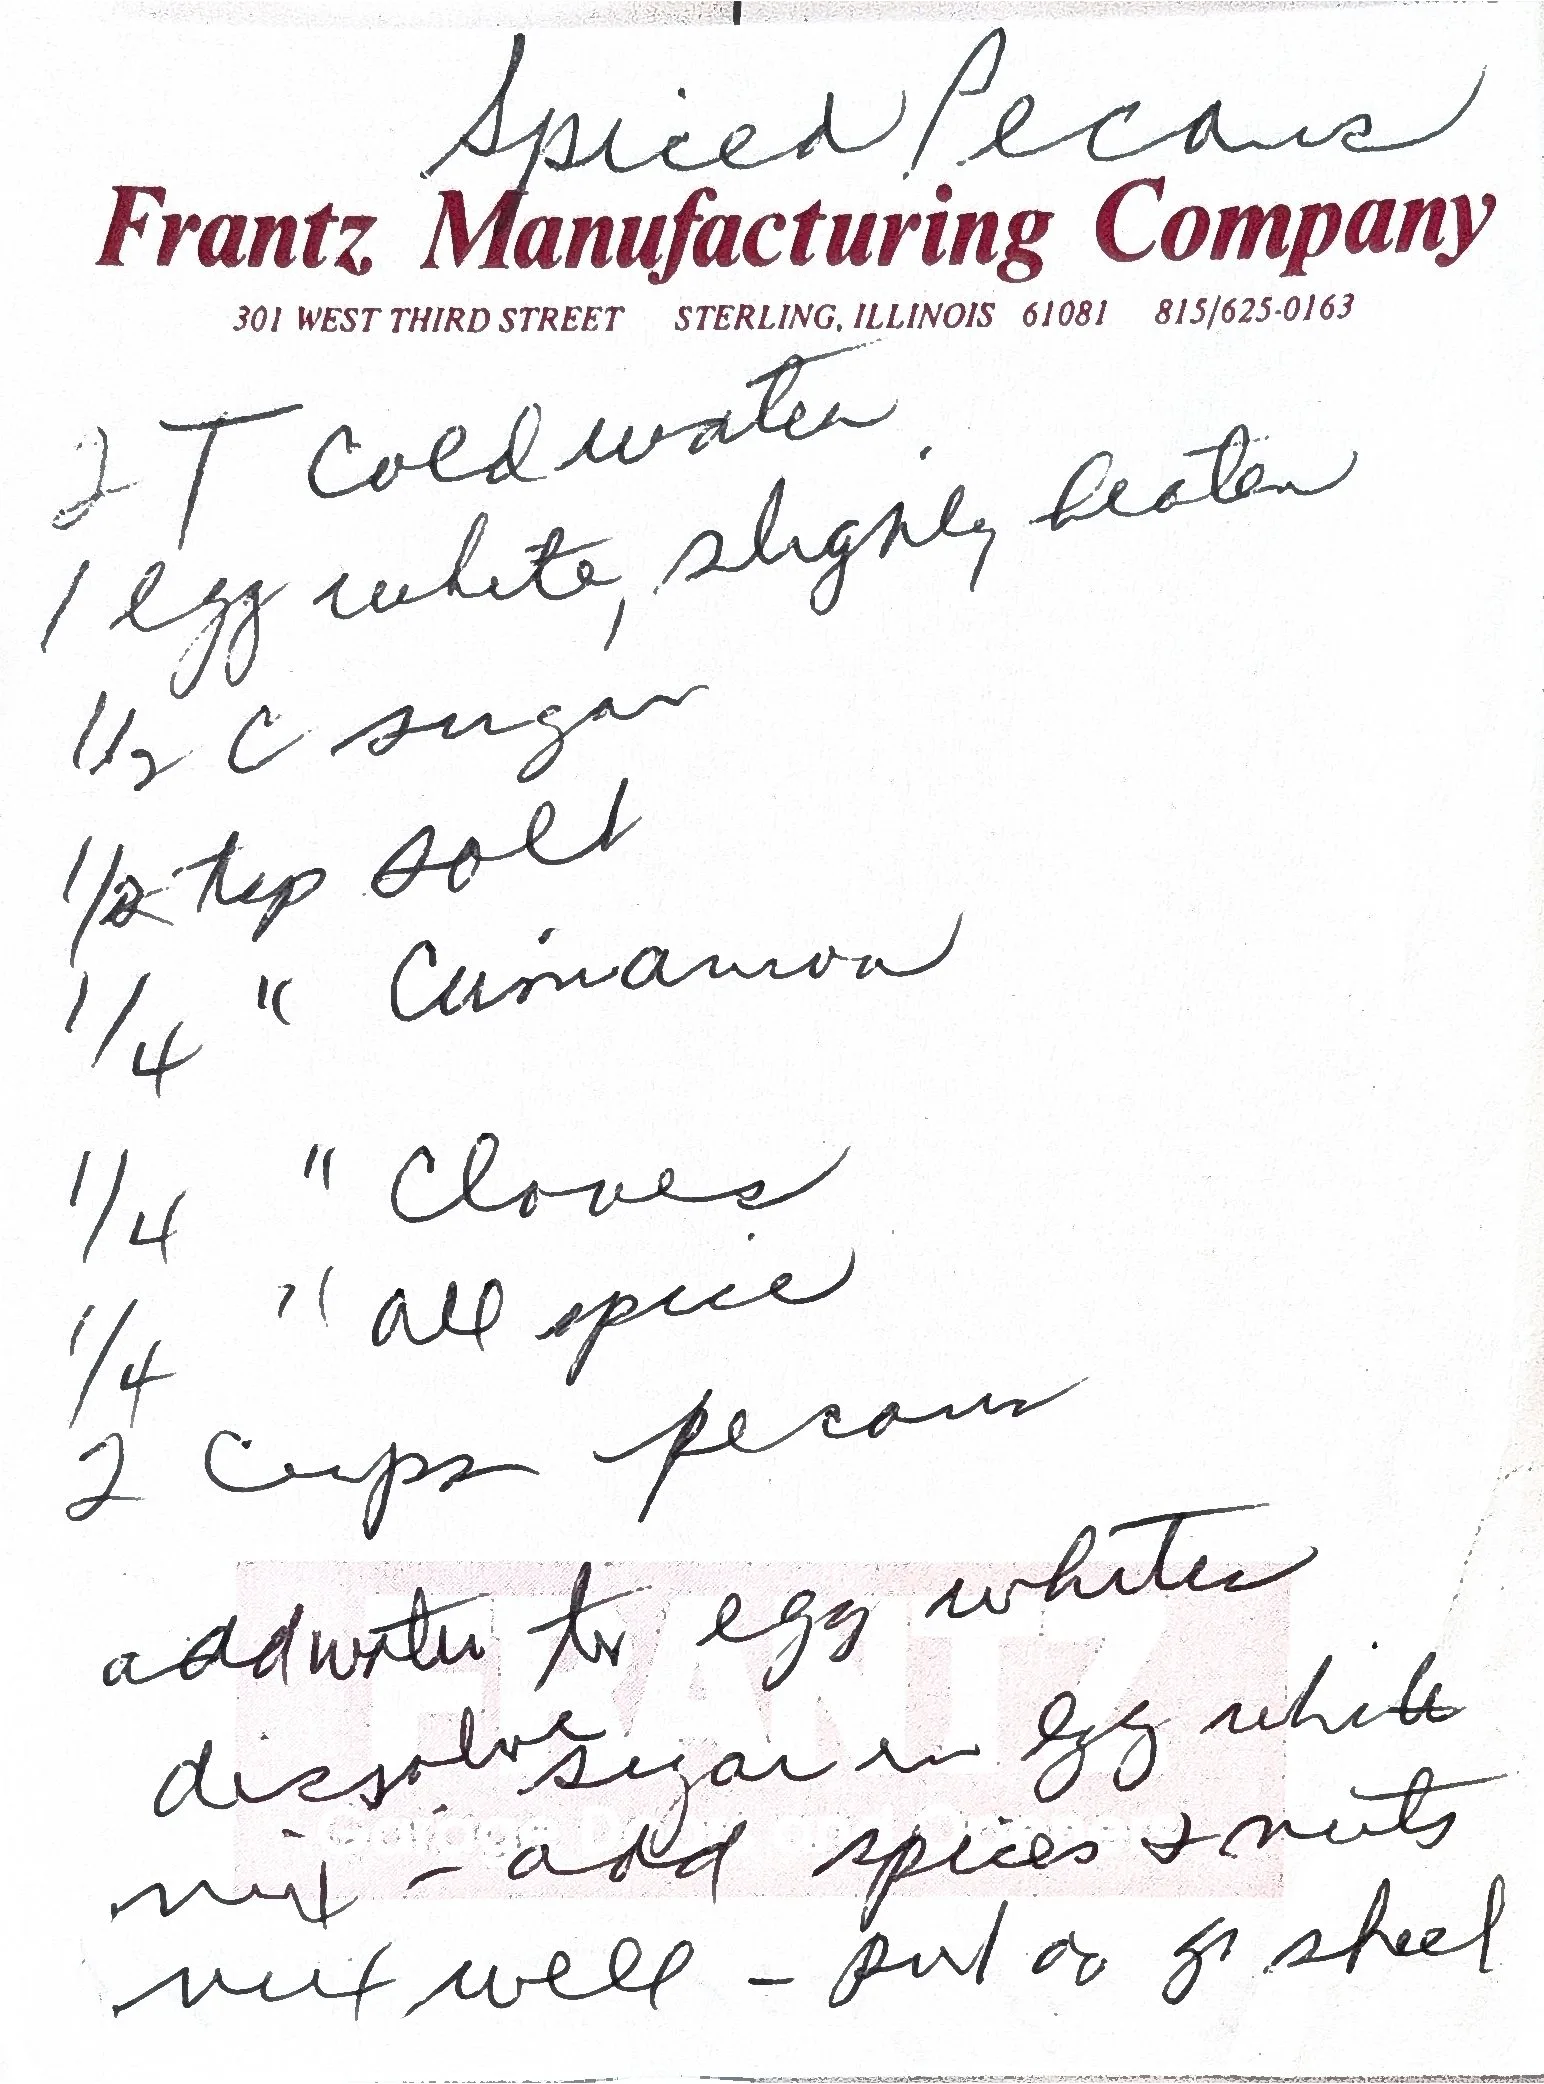 Spiced Pecans
Frantz Manufacturing Company
301 WEST THIRD STREET STERLING, ILLINOIS 61081 815/625-0163
2 T Cold water
1 egg white, slightly beaten
1/2 C sugar
1/2 tsp salt
1/4 " Cinnamon
1/4 " Cloves
1/4 " all spice
2 Cups pecans
add water to egg whites
dissolve sugar in egg white
mix - add spices & nuts
mix well - put on gr sheet
FRANTZ